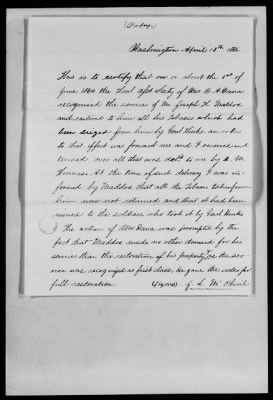 (Copy)
Washington April 10th 186
This is to certify that on or about the 1st of
June 1864 the Hon'l Asst Secty of War C A Dana
recognised the services of Mr Joseph H. Maddox
and restored to him all his Tobacco which had
been seized from him by Genl Hinks an order
to that effect was forward me and I received and
turned over all that was deld to me by
At the time of such delivery I was in-
formed by Maddox that all the Tobacco taken from
him was not returned and that it had been
issued to the soldiers who took it by Genl Hinks
The action of Mr Dana was prompted by the
fact that Maddox made no other demand for his
services than the restoration of his property & as the ser-
vice was recognized as first class, He gave the order for
full restoration.
(Signed)